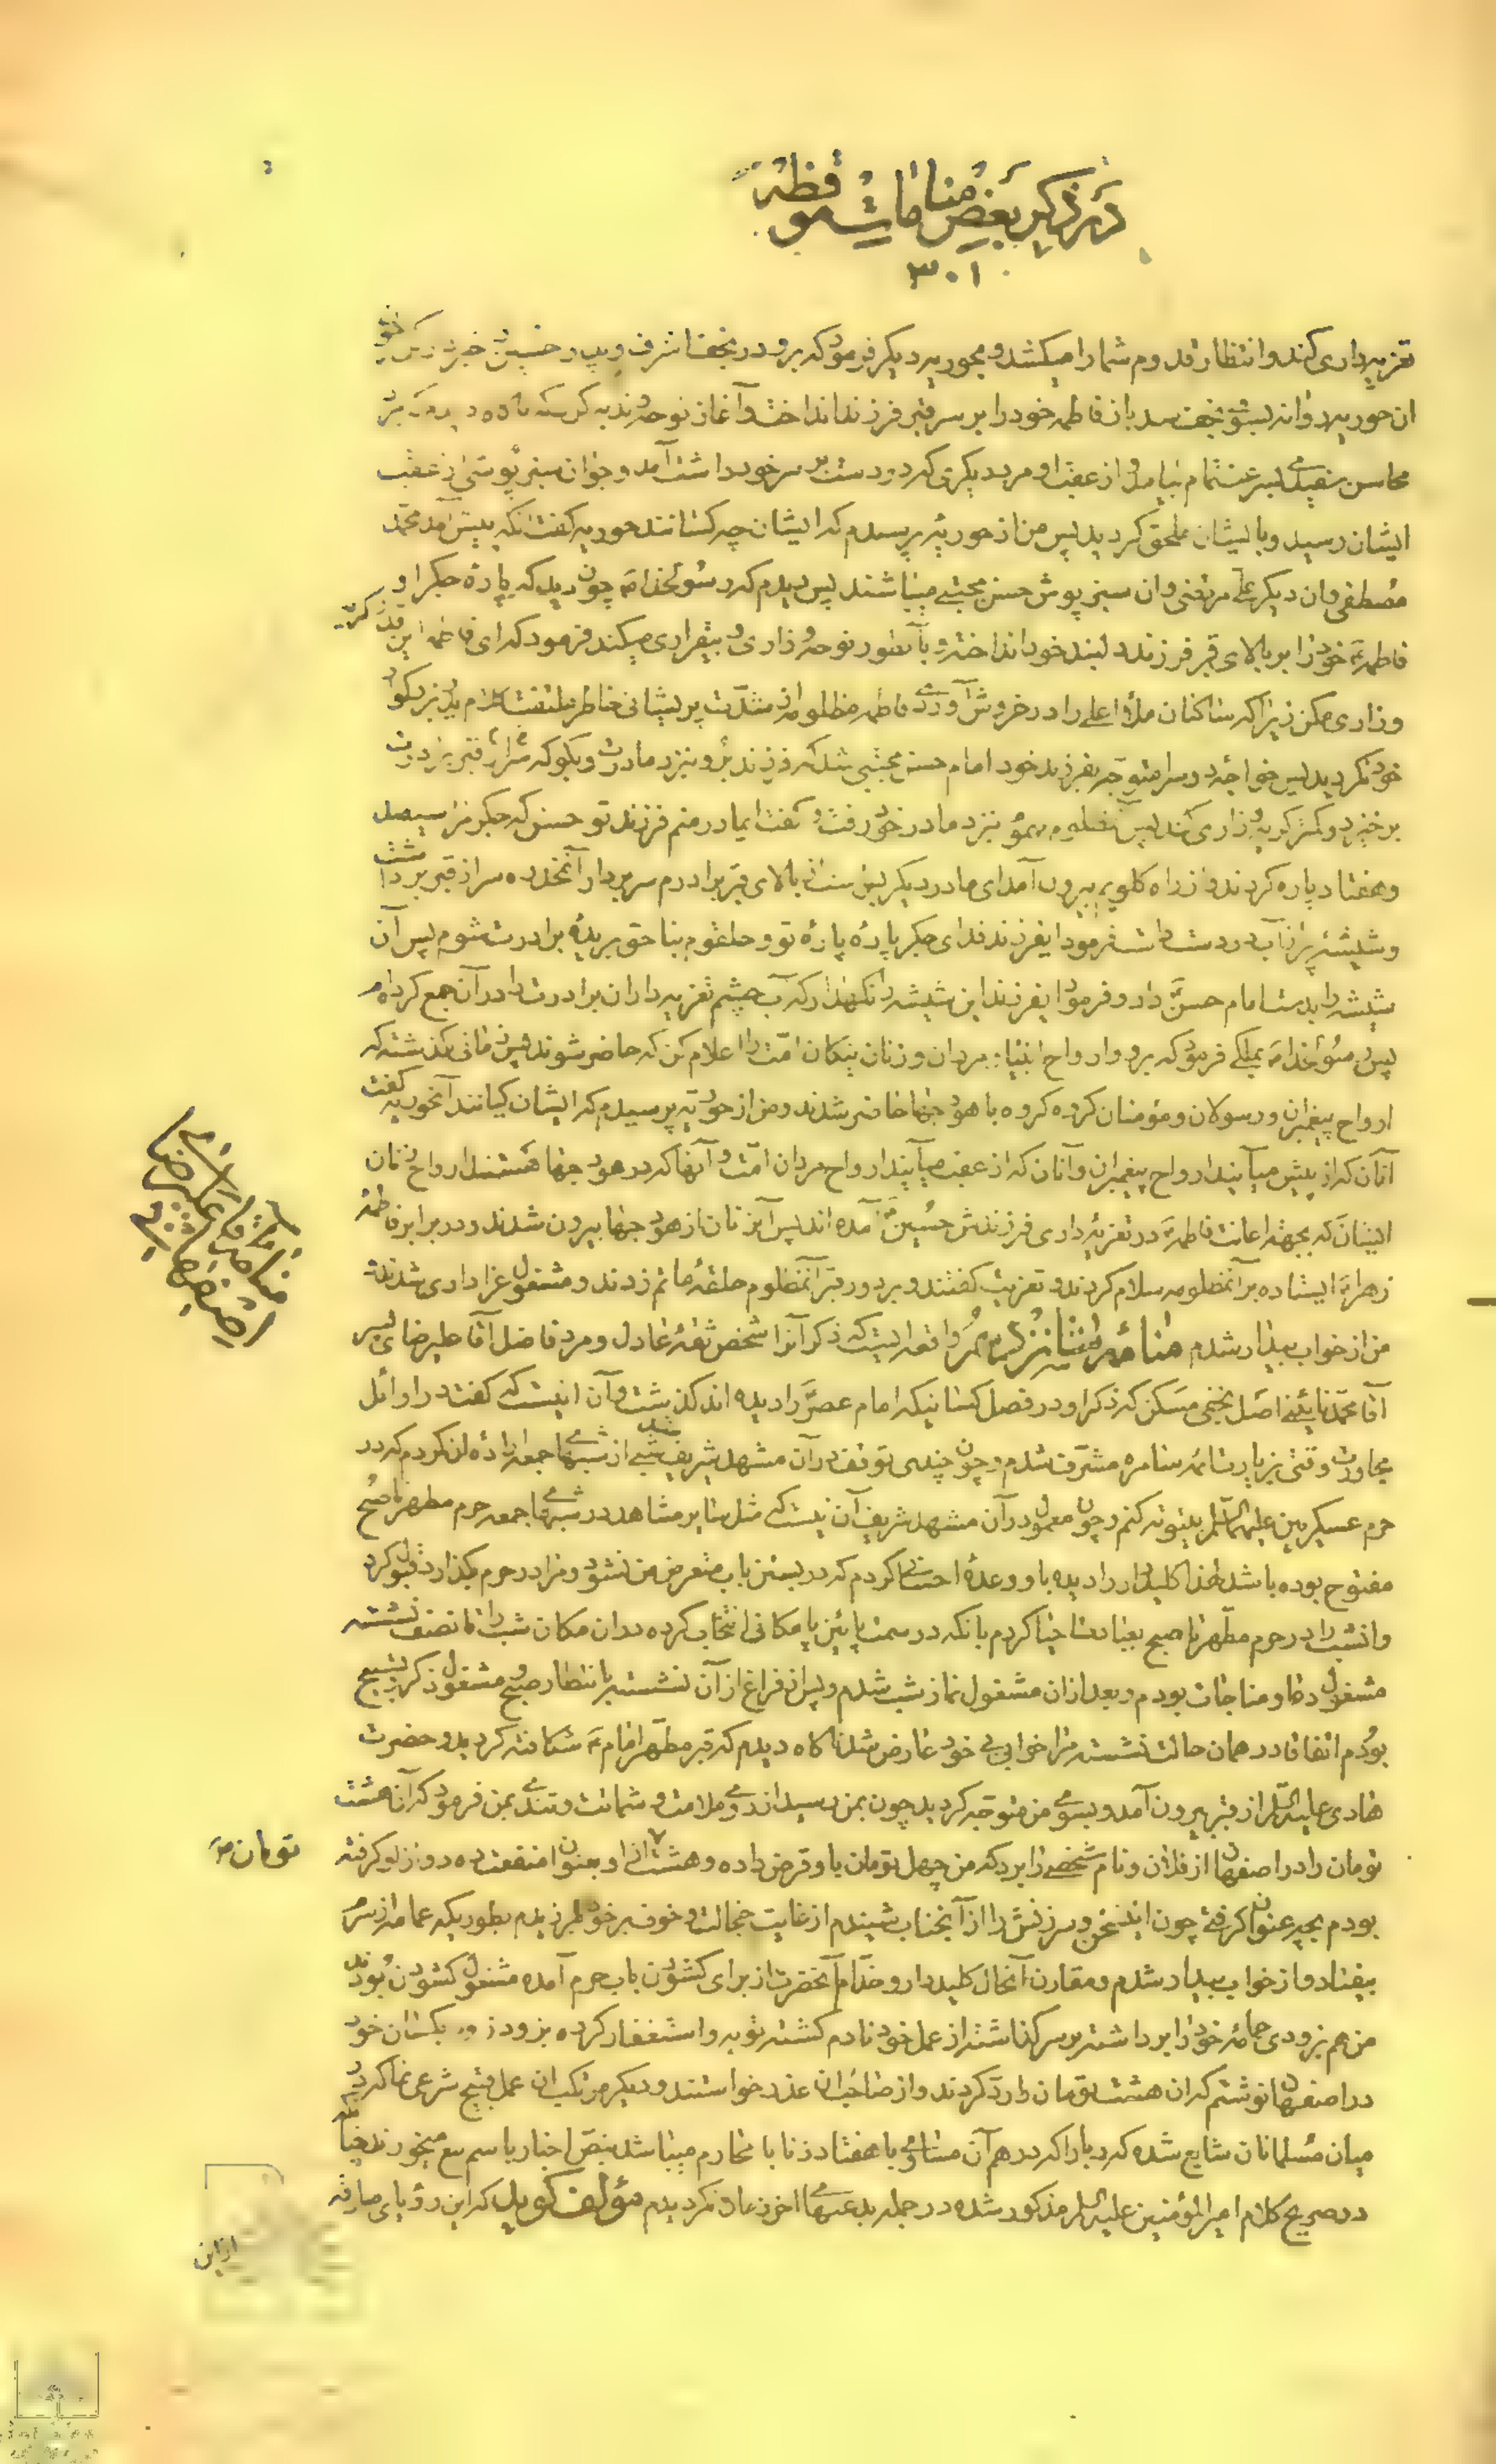 در ذکر بعض منامات موقظه
۳۰۱
تعزیه داری کند و انتظار قدوم شما را میکشد و بحوریه دیگر فرمود که برو در نجف اشرف و پدر حسین خبر کن
ان حوریه روانه بسوی نجف شد بانو فاطمه خود را بر سر قبر فرزند انداخت و آغاز نوحه و ندبه کرد که
محاسن سفیدی بسرعت تمام بیامد و از عقب او مرد دیگری که دو دست بر سر خود داشت آمد و جوان سبز پوشی از عقب
ایشان رسید و بایشان ملحق گردید پس من از حوریه پرسیدم که ایشان چه کسانند حوریه گفت آنکه پیش آمد محمد
مصطفی و ان دیگر علی مرتضی و ان سبز پوش حسن مجتبی میباشند پس دیدم که رسول خدا ص چون دید که پاره جگر او
فاطمه ع خود را بر بالای قبر فرزند دلبند خود انداخته و بآنطور نوحه و زاری و بیقراری میکند فرمود که ای فاطمه این قدر گریه
و زاری مکن زیرا که ساکنان ملأ اعلی را در خروش آوردی فاطمه مظلومه از شدت پریشانی خاطر ملتفت کلام پدر بزرگوار
خود نگردید پس خواجه دو سرا متوجه بفرزند خود امام حسن مجتبی شد که فرزند برو بنزد مادرت و بگو که سر از قبر برادرت
برخیزد و کمتر گریه و زاری کند پس آن مظلوم مسموم بنزد مادر خود رفت و گفت ایمادر منم فرزند تو حسن که جگر مرا سیصد
و هفتاد پاره کردند و از راه گلویم بیرون آمد ای مادر دیگر بس است از بالای قبر برادرم سر بردار آنمخدره سر از قبر برداشت
و شیشه پر از آب در دست داشت فرمود ایفرزند فدای جگر پاره پاره تو و حلقوم بناحق بریدۀ برادرت شوم پس آن
شیشه را بدست امام حسن ع داد و فرمود ایفرزند این شیشه را نگهدار که آب چشم تعزیه داران برادرت را در آن جمع کرده‌ام
پس رسول خدا ص بملکی فرمود که برو و ارواح انبیاء و مردان و زنان نیکان امت را اعلام کن که حاضر شوند پس زمانی نگذشته که
ارواح پیغمبران و رسولان و مؤمنان گروه گروه با هودجها حاضر شدند و من از حوریه پرسیدم که ایشان کیانند آنحوریه گفت
آنان که از پیش میآیند ارواح پیغمبران و آنان که از عقب میآیند ارواح مردان امت و آنها که در هودجها هستند ارواح زنان
ایشان که بجهت اعانت فاطمه ع در تعزیه داری فرزندش حسین ع آمده‌اند پس آنزنان از هودجها بیرون شدند و در برابر فاطمه
زهرا ع ایستاده بر آنمظلومه سلام کردند و تعزیت گفتند و بر دور قبر آنمظلوم حلقۀ ماتم زدند و مشغول عزاداری شدند
من از خواب بیدار شدم منامۀ واقعه ایست که ذکر آنرا شخص ثقۀ عادل و مرد فاضل آقا علیرضای پسر
آقا محمد نائینی اصل نجفی مسکن که ذکر او در فصل کسانیکه امام عصر ع را دیده‌اند گذشت و آن اینست که گفت در اوائل
مجاورت وقتی بزیارت ائمه سامره مشرف شدم و چون چندی توقف در آن مشهد شریف شد شبی از شبهای جمعه اراده آن کردم که در
حرم عسکریین علیهما السلام بیتوته کنم و چون معمول در آن مشهد شریف آن نیست که مثل سایر مشاهد در شبهای جمعه حرم مطهر تا صبح
مفتوح بوده باشد لهذا کلیددار را دیده باو وعدۀ احسانی کردم که در بستن باب متعرض من نشود و مرا در حرم بگذارد قبول کرد
و انشب را در حرم مطهر تا صبح بعبادت احیا کردم بآنکه در سمت پائین پا مکانی انتخاب کرده در ان مکان شب را تا نصف نشسته
مشغول دعا و مناجات بودم و بعد از ان مشغول نماز شب شدم و پس از فراغ از آن نشسته بانتظار صبح و مشغول ذکر و تسبیح
بودم اتفاقا در همان حالت نشسته مرا خوابی بی خود عارض شد ناگاه دیدم که قبر مطهر امام ع شکافته گردید و حضرت
هادی علیه السلام از قبر بیرون آمد و بسوی من متوجه گردید چون بمن رسید از روی ملامت و شماتت و تندی بمن فرمود که آن هشت
تومان را در اصفهان از فلان و نام شخصی را برد که من چهل تومان باو قرض داده و هشت از او بعنوان منفعت ده دوازده گرفته
تومان
بودم بچه عنوان گرفتی چون این سخن و سرزنش را از آنجناب شنیدم از غایت خجالت و خوف بر خود لرزیدم بطوریکه عمامه از سرم
بیفتاد و از خواب بیدار شدم و مقارن آنحال کلیددار و خدام آنحضرت از برای گشودن باب حرم آمده مشغول گشودن بودند
من هم بزودی عمامۀ خود را برداشته بر سر گذاشته از عمل خود نادم گشته توبه و استغفار کرده بزودی بکسان خود
در اصفهان نوشتم که ان هشت تومان را رد کردند و از صاحب ان عذر خواستند و دیگر مرتکب ان عمل قبیح شرعی نما نگردیدم
میان مسلمانان شایع شده که ربا را که درهم آن مساوی با هفتاد زنا با محارم میباشد بنص اخبار باسم بیع میخورند چنانکه
در صریح کلام امیرالمؤمنین علیه السلام مذکور شده در جمله بدعتهای اخر زمان نگردیدم مؤلف گوید که این رؤیای صادقه
از این